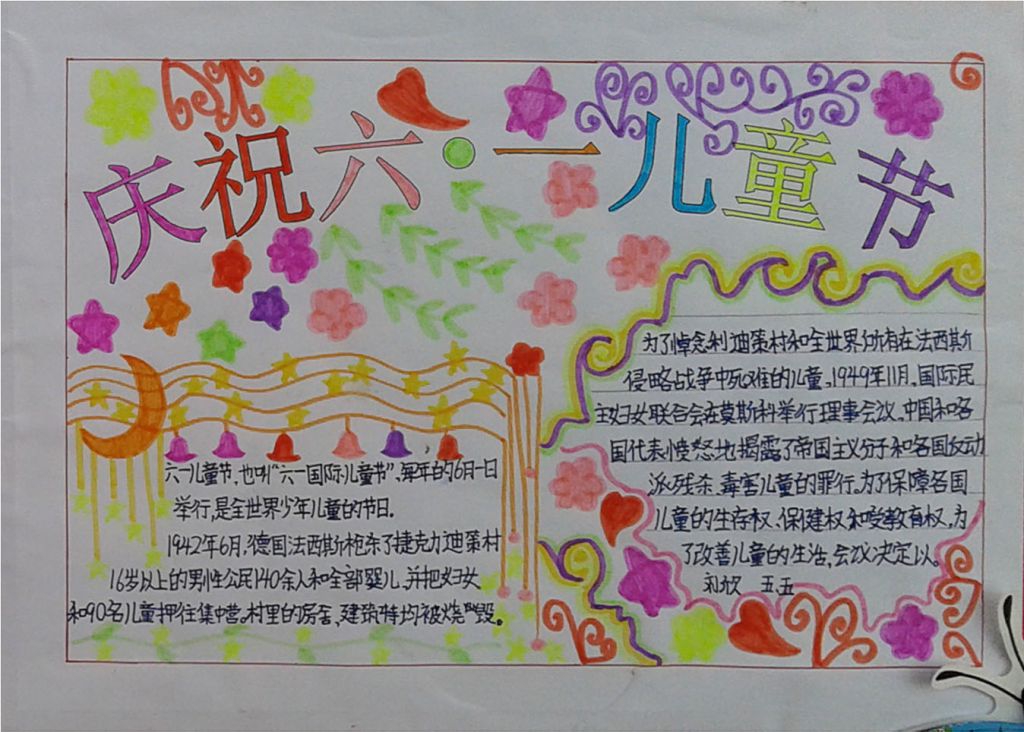 庆祝六·一儿童节
六一儿童节,也叫“六一国际儿童节”,每年的6月一日
举行,是全世界少年儿童的节日。
1942年6月,德国法西斯枪杀了捷克力迪策村
16岁以上的男性公民140余人和全部婴儿,并把妇女
和90名儿童押往集中营。村里的房舍,建筑特均被烧毁。
为了悼念利迪策村和全世界所有在法西斯
侵略战争中死难的儿童。1949年11月,国际民
主妇女联合会在莫斯科举行理事会议,中国和各
国代表愤怒地揭露了帝国主义分子和各国反动
派残杀、毒害儿童的罪行。为了保障各国
儿童的生存权、保健权和受教育权,为
了改善儿童的生活,会议决定以。
五.五